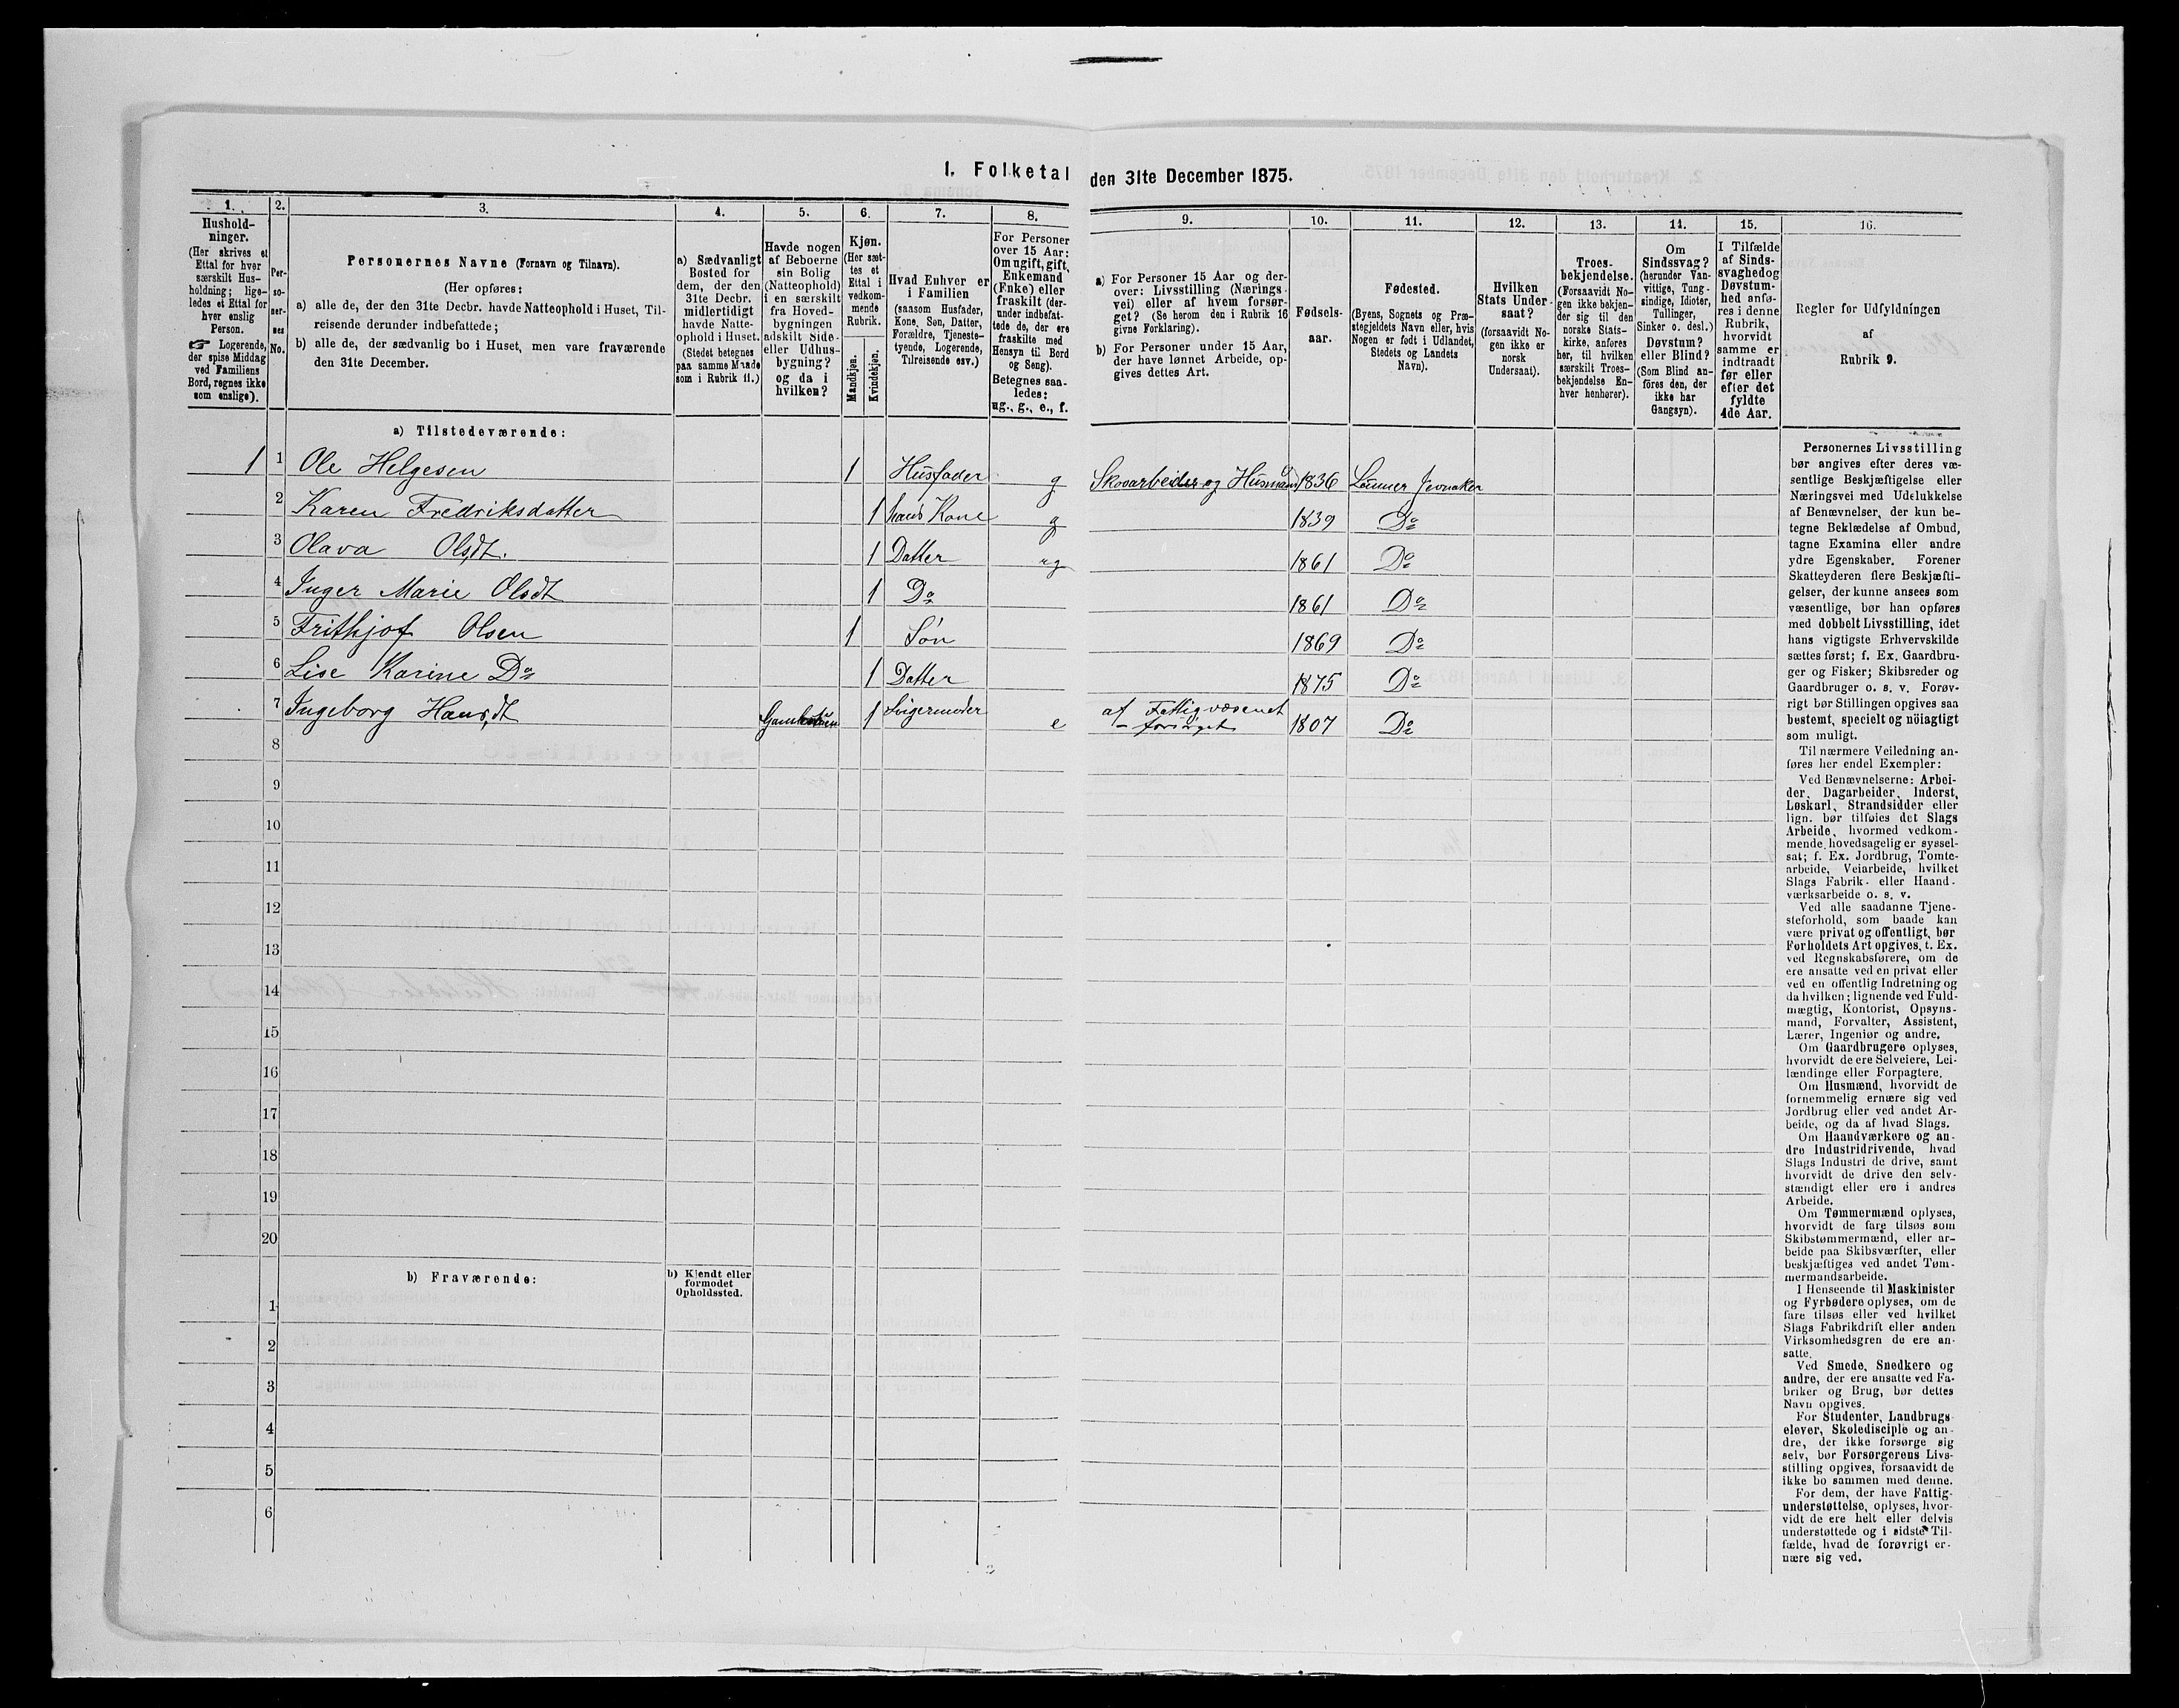 1. Folketal den 31te December 1875.
1.
2.
3.
4.
5.
6.
7.
8.
9.
10.
11.
12.
13.
14.
15.
16.
Hushold-
ninger.
(Her skrives et
Ettal for hver
særskilt Hus-
holdning; lige-
ledes et Ettal for
hver enslig
Person.
☞ Logerende,
der spise Middag
ved Familiens
Bord, regnes ikke
som enslige).
Per-
so-
ner-
nes
No.
Personernes Navne (Fornavn og Tilnavn).
(Her opføres:
a) alle de, der den 31te Decbr. havde Natteophold i Huset, Til-
reisende derunder indbefattede;
b) alle de, der sædvanlig bo i Huset, men vare fraværende
den 31te December.
a) Sædvanligt
Bosted for
dem, der den
31te Decbr.
midlertidigt
havde Natte-
ophold i Huset.
(Stedet betegnes
paa samme Maade
som i Rubrik 11.)
Havde nogen
af Beboerne
sin Bolig
(Natteophold)
i en særskilt
fra Hoved-
bygningen
adskilt Side-
eller Udhus-
bygning?
og da i
hvilken?
Kjøn.
(Her sæt-
tes et
Ettal i
vedkom-
mende
Rubrik.
Mandkjøn.
Kvindekjøn.
Hvad Enhver er
i Familien
(saasom Husfader,
Kone, Søn, Datter,
Forældre, Tjeneste-
tyende, Logerende,
Tilreisende osv.)
For Personer
over 15 Aar:
Om ugift, gift,
Enkemand
(Enke) eller
fraskilt (der-
under indbefat-
tede de, der ere
fraskilte med
Hensyn til Bord
og Seng).
Betegnes saa-
ledes:
ug., g., e., f.
a) For Personer 15 Aar og der-
over: Livsstilling (Nærings-
vei) eller af hvem forsør-
get? (Se herom den i Rubrik 16
givne Forklaring).
b) For Personer under 15 Aar,
der have lønnet Arbeide, op-
gives dettes Art.
Fødsels-
aar.
Fødested.
(Byens, Sognets og Præ-
stegjeldets Navn eller, hvis
Nogen er født i Udlandet,
Stedets og Landets
Navn).
Hvilken
Stats Under-
saat?
(forsaavidt No-
gen ikke er
norsk
Undersaat).
Troes-
bekjendelse.
(Forsaavidt No-
gen ikke bekjen-
der sig til den
norske Stats-
kirke, anføres
her, til hvilken
særskilt Troes-
bekjendelse En-
hver henhører).
Om
Sindssvag?
(herunder Van-
vittige, Tung-
sindige, Idioter,
Tullinger,
Sinker o. desl.)
Døvstum?
eller Blind?
(Som Blind an-
föres den, der
ikke har
Gangsyn).
I Tilfælde
af Sinds-
svaghed og
Døvstum-
hed anfø-
res i denne
Rubrik,
hvorvidt
samme er
indtraadt
før eller
efter det
fyldte
4de Aar.
Regler for Udfyldningen
af
Rubrik 9.
a) Tilstedeværende:
1 1 Ole Helgesen 1 Husfader g Skovarbeider og Husmand 1836 Lunner Jevnaker
2 Karen Fredriksdatter 1 hans Kone g 1839 Do
3 Olava Olsdt. 1 Datter ug 1861 Do
4 Inger Marie Olsdt 1 Do 1861 Do
5 Frithjof Olsen 1 Søn 1869 Do
6 Lise Karine Do 1 Datter 1875 Do
7 Ingeborg Hansdt 1 Svigermoder e af Fattigvæsenet
forsørget 1807 Do
8
9
10
11
12
13
14
15
16
17
18
19
20
b) Fraværende:
b) Kjendt eller
formodet
Opholdssted.
1
2
3
4
5
6
Personernes Livsstilling
bør angives efter deres væ-
sentlige Beskjæftigelse eller
Næringsvei med Udelukkelse
af Benævnelser, der kun be-
tegne Beklædelse af Ombud,
tagne Examina eller andre
ydre Egenskaber. Forener
Skatteyderen flere Beskjæfti-
gelser, der kunne ansees som
væsentlige, bør han opføres
med dobbelt Livsstilling, idet
hans vigtigste Erhvervskilde
sættes først; f. Ex. Gaardbru-
ger og Fisker; Skibsreder og
Gaardbruger o. s. v. Forøv-
rigt bør Stillingen opgives saa
bestemt, specielt og nöiagtigt
som muligt.
Til nærmere Veiledning an-
føres her endel Exempler:
Ved Benævnelserne: Arbei-
der, Dagarbeider, Inderst,
Løskarl, Strandsidder eller
lign. bør tilføies det Slags
Arbeide, hvormed vedkom-
mende hovedsagelig er syssel-
sat; f. Ex. Jordbrug, Tomte-
arbeide, Veiarbeide, hvilket
Slags Fabrik- eller Haand-
værksarbeide o. s. v.
Ved alle saadanne Tjene-
steforhold, som baade kan
være privat og offentligt, bør
Forholdets Art opgives, t. Ex.
ved Regnskabsførere, om de
ere ansatte ved en privat eller
ved en offentlig Indretning og
da hvilken; lignende ved Fuld-
mægtig, Kontorist, Opsyns-
mand, Forvalter, Assistent,
Lærer, Ingeniør og andre.
Om Gaardbrugere oplyses,
hvorvidt de ere Selveiere, Lei-
lændinge eller Forpagtere.
Om Husmænd, hvorvidt de
fornemmelig ernære sig ved
Jordbrug eller ved andet Ar-
beide, og da af hvad Slags.
Om Haandværkere og an-
dre Industridrivende, hvad
Slags Industri de drive, samt
hvorvidt de drive den selv-
stændigt eller ere i andres
Arbeide.
Om Tømmermænd oplyses,
hvorvidt de fare tilsøs som
Skibstømmermænd, eller ar-
beide paa Skibsværfter, eller
beskjæftiges ved andet Tøm-
mermandsarbeide.
I Henseende til Maskinister
og Fyrbødere oplyses, om de
fare tilsøs eller ved hvilket
Slags Fabrikdrift eller anden
Virksomhedsgren de ere an-
satte.
Ved Smede, Snedkere og
andre, der ere ansatte ved Fa-
briker og Brug, bør dettes
Navn opgives.
For Studenter, Landbrugs-
elever, Skoledisciple og an-
dre, der ikke forsørge sig
selv, bør Forsørgerens Livs-
stilling opgives, forsaavidt de
ikke bo sammen med denne.
For dem, der have Fattig-
understøttelse, oplyses, hvor-
vidt de ere helt eller delvis
understøttede og i sidste Til-
fælde, hvad de forøvrigt er-
nære sig ved.